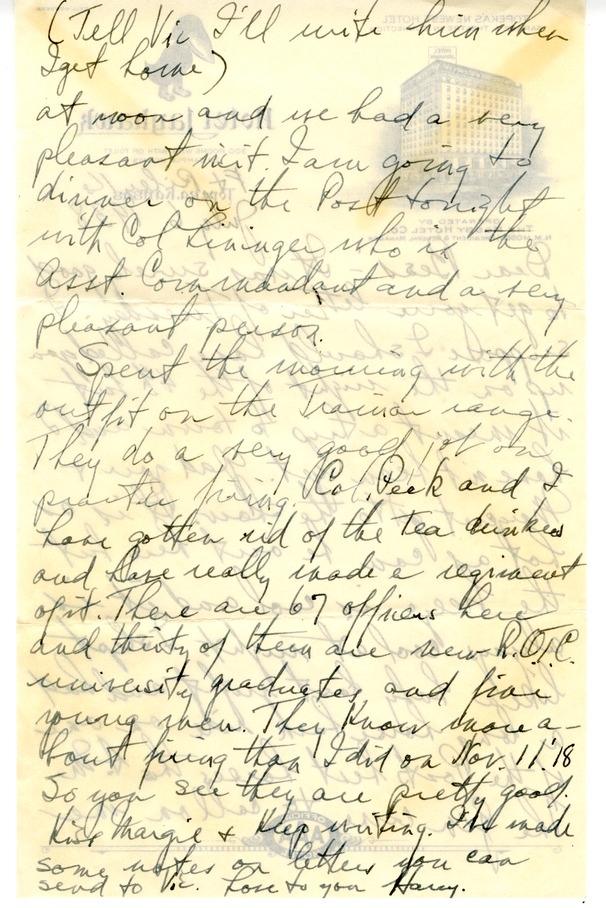 (Tell Vic I'll write him when
I get home)
at noon and we had a very
pleasant visit. I am going to
dinner on the Post tonight
with Col Lininger who is the
Asst. Commandant and a very
pleasant person.
Spent the morning with the
outfit on the Trainor range.
They do a very good job on
practice firing. Col. Peek and I
have gotten rid of the tea drinkers
and have really made a regiment
of it. There are 67 officers here
and thirty of them are new R.O.T.C.
university graduates and fine
young men. They know more a-
bout firing than I did on Nov. 11 '18
So you see they are pretty good.
Kiss Margie & Keep writing. I've made
some notes on letters you can
send to Vic. Love to you Harry.